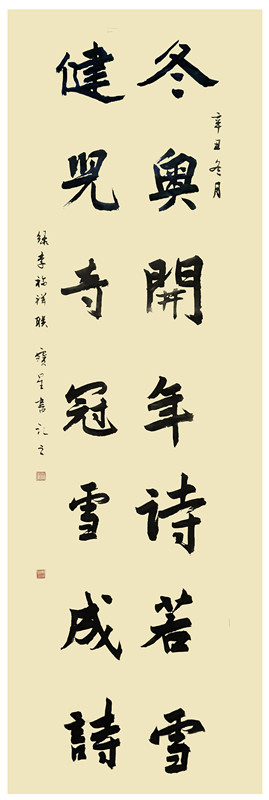 辛丑冬月
冬奥開年诗若雪
健兒夺冠雪成詩
李祥联 星書记之